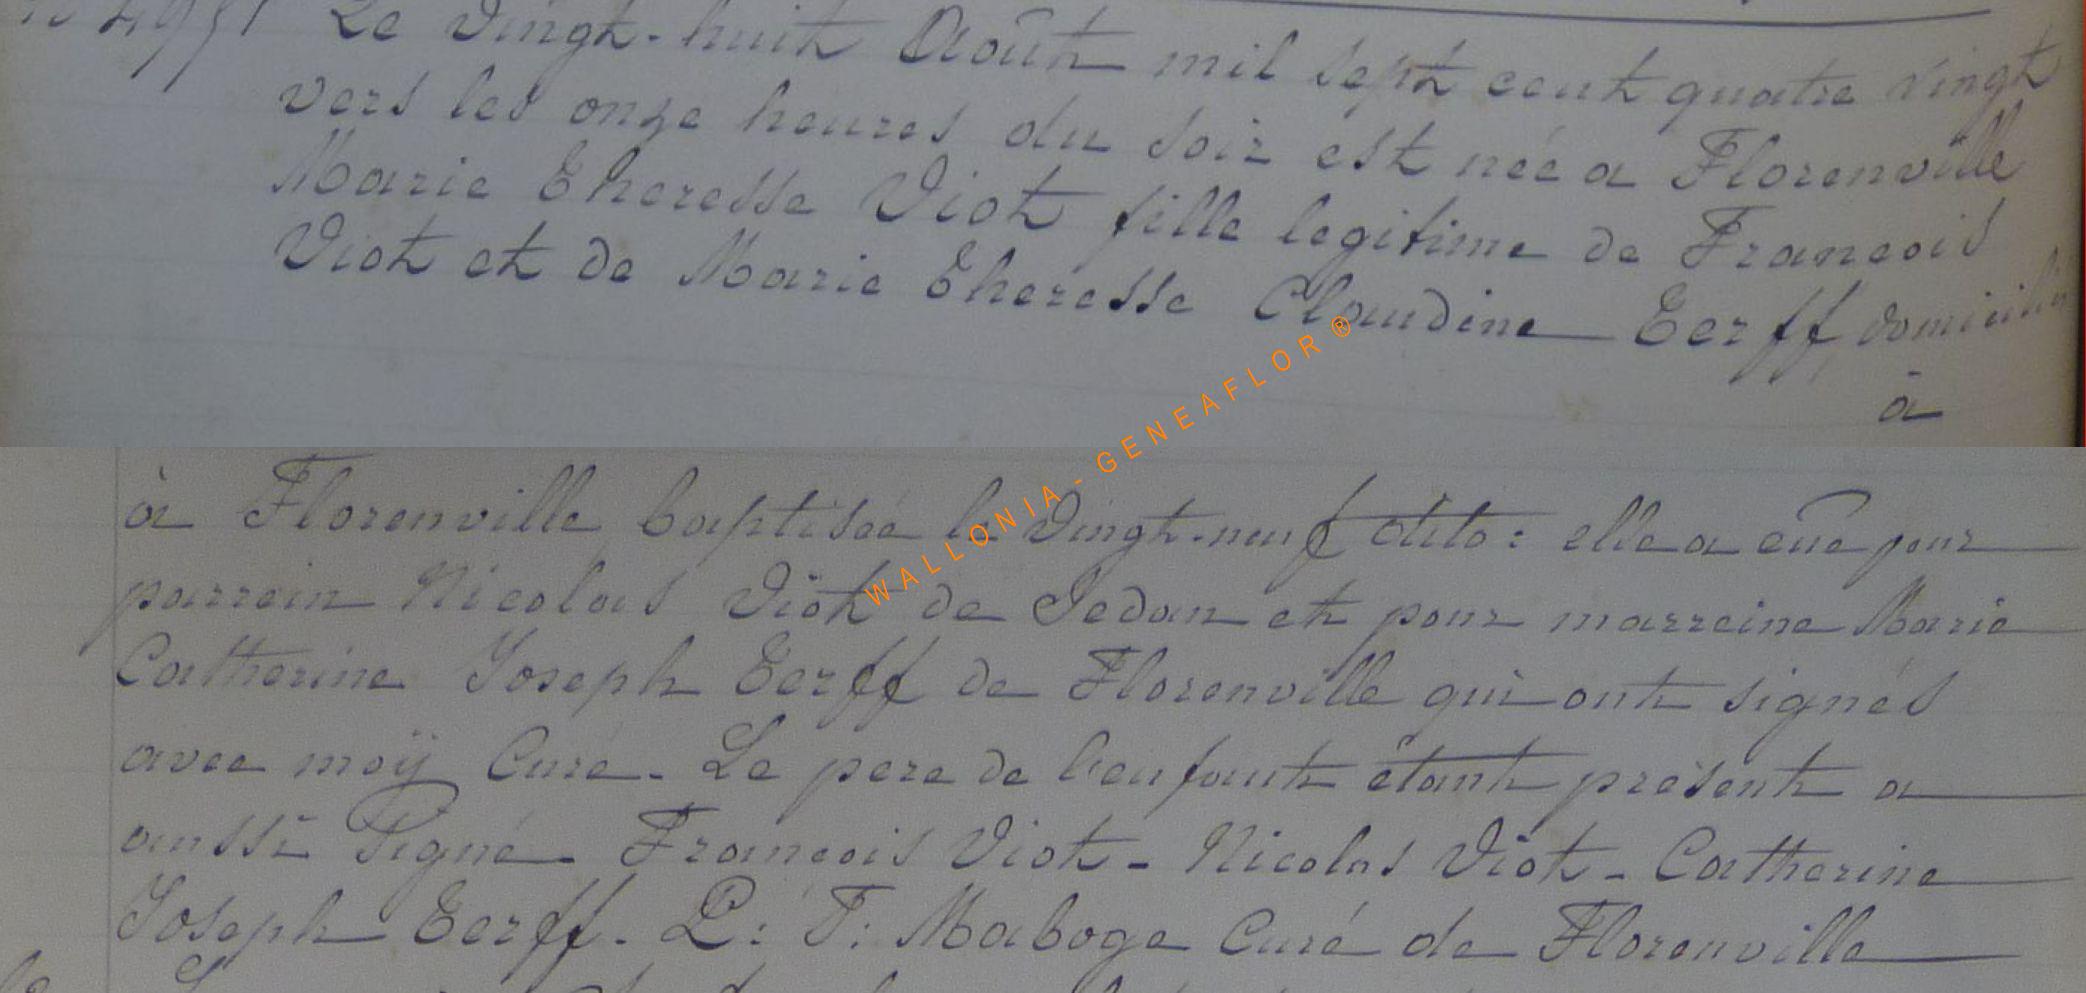 Le Vingt-huit Août mil sept cent quatre vingt
vers les onze heures du soir est née a Florenville
Marie Theresse Viot fille legitime de Francois
Viot et de Marie Theresse Claudine Terff domicilié
à
WALLONIA-GENEAFLOR®
à Florenville baptisée le Vingt-neuf dito: elle a eue pour
parrein Nicolas Viot de Sedan et pour marreine Marie
Catherine Joseph Terff de Florenville qui ont signés
avec moÿ Curé. Le pere de l'enfant étant présent a
aussi signé. Francois Viot - Nicolas Viot - Catherine
Joseph Terff. L: T: Maboge Curé de Florenville